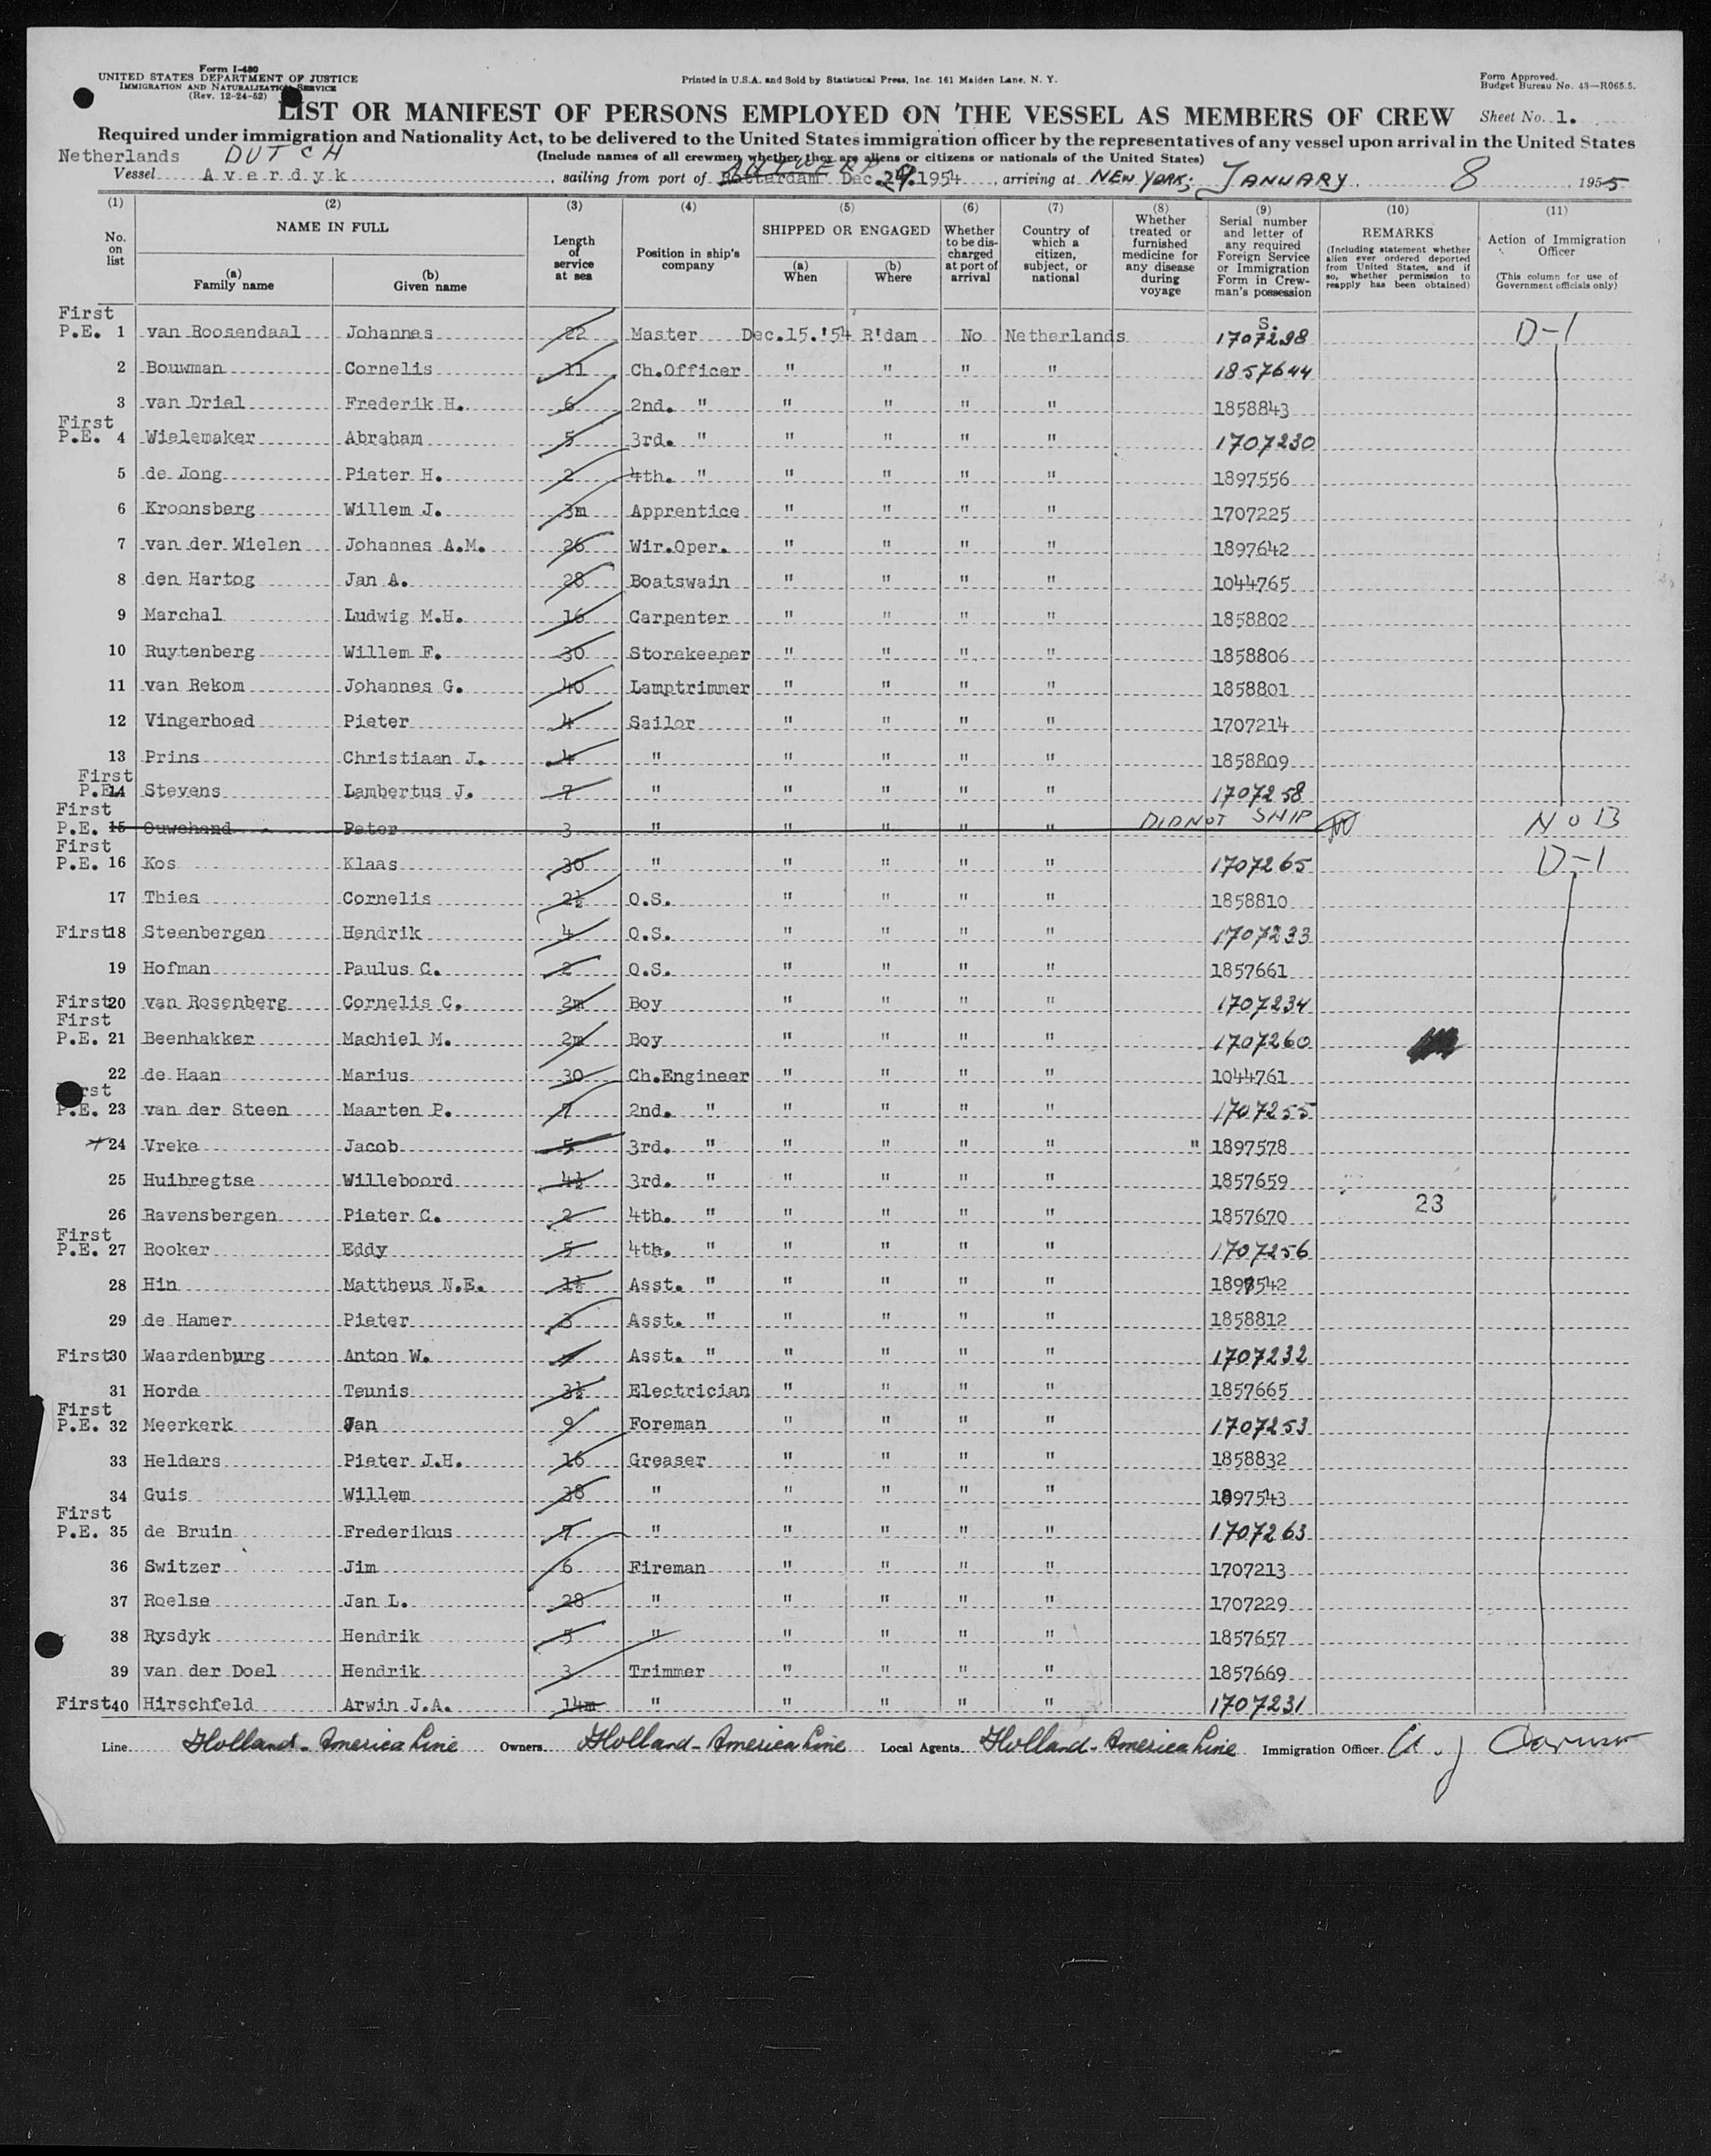 Form I-480
UNITED STATES DEPARTMENT OF JUSTICE
IMMIGRATION AND NATURALIZATION SERVICE
(Rev. 12-24-52)
Printed in U.S.A. and Sold by Statistical Press, Inc. 161 Maiden Lane, N. Y.
Form Approved.
Budget Bureau No. 43—R065.5.
LIST OR MANIFEST OF PERSONS EMPLOYED ON THE VESSEL AS MEMBERS OF CREW Sheet No. 1.
Required under immigration and Nationality Act, to be delivered to the United States immigration officer by the representatives of any vessel upon arrival in the United States
Netherlands DUTCH (Include names of all crewmen whether they are aliens or citizens or nationals of the United States)
Vessel Averdyk, sailing from port of Rotterdam Dec. 29. 1954, arriving at NEW YORK; JANUARY 8 1955
(1) No. on list
(2) NAME IN FULL
(a) Family name
(b) Given name
(3) Length of service at sea
(4) Position in ship's company
(5) SHIPPED OR ENGAGED
(a) When
(b) Where
(6) Whether to be discharged at port of arrival
(7) Country of which a citizen, subject, or national
(8) Whether treated or furnished medicine for any disease during voyage
(9) Serial number and letter of any required Foreign Service or Immigration Form in Crewman's possession
(10) REMARKS (Including statement whether alien ever ordered deported from United States, and if so, whether permission to reapply has been obtained)
(11) Action of Immigration Officer (This column for use of Government officials only)
First P.E. 1 van Roosendaal Johannes 22 Master Dec.15.'54 R'dam No Netherlands S. 1707298 D-1
2 Bouwman Cornelis 11 Ch.Officer " " " " 1857644
3 van Driel Frederik H. 6 2nd. " " " " " 1858843
First P.E. 4 Wielemaker Abraham 5 3rd. " " " " " 1707230
5 de Jong Pieter H. 2 4th. " " " " " 1897556
6 Kroonsberg Willem J. 3m Apprentice " " " " 1707225
7 van der Wielen Johannes A.M. 26 Wir.Oper. " " " " 1897642
8 den Hartog Jan A. 28 Boatswain " " " " 1044765
9 Marchal Ludwig M.H. 16 Carpenter " " " " 1858802
10 Ruytenberg Willem F. 30 Storekeeper " " " " 1858806
11 van Rekom Johannes G. 40 Lamptrimmer " " " " 1858801
12 Vingerhoed Pieter 4 Sailor " " " " 1707214
13 Prins Christiaan J. 4 " " " " " 1858809
First P.E. 14 Stevens Lambertus J. 7 " " " " " 1707258
First P.E. 15 Ouwehand Peter 3 " " " " " DID NOT SHIP NOB
First P.E. 16 Kos Klaas 30 " " " " " 1707265 D-1
17 Thies Cornelis 2½ O.S. " " " " 1858810
First 18 Steenbergen Hendrik 4 O.S. " " " " 1707233
19 Hofman Paulus C. 2 O.S. " " " " 1857661
First 20 van Rosenberg Cornelis C. 2m Boy " " " " 1707234
First P.E. 21 Beenhakker Machiel M. 2m Boy " " " " 1707260
22 de Haan Marius 30 Ch.Engineer " " " " 1044761
First P.E. 23 van der Steen Maarten P. 7 2nd. " " " " " 1707255
24 Vreke Jacob 5 3rd. " " " " " " 1897578
25 Huibregtse Willeboord 4½ 3rd. " " " " " 1857659
26 Ravensbergen Pieter C. 2 4th. " " " " " 1857670 23
First P.E. 27 Rooker Eddy 5 4th. " " " " " 1707256
28 Hin Mattheus N.E. 1½ Asst. " " " " " 1897542
29 de Hamer Pieter 3 Asst. " " " " " 1858812
First 30 Waardenburg Anton W. Asst. " " " " " 1707232
31 Horde Teunis 3½ Electrician " " " " 1857665
First P.E. 32 Meerkerk Jan 9 Foreman " " " " 1707253
33 Helders Pieter J.H. 16 Greaser " " " " 1858832
34 Guis Willem 38 " " " " " 1897543
First P.E. 35 de Bruin Frederikus 7 " " " " " 1707263
36 Switzer Jim 6 Fireman " " " " 1707213
37 Roelse Jan L. 28 " " " " " 1707229
38 Rysdyk Hendrik 5 " " " " " 1857657
39 van der Doel Hendrik 3 Trimmer " " " " 1857669
First 40 Hirschfeld Arwin J.A. 14m " " " " " 1707231
Line Holland-America Line Owners Holland-America Line Local Agents Holland-America Line Immigration Officer